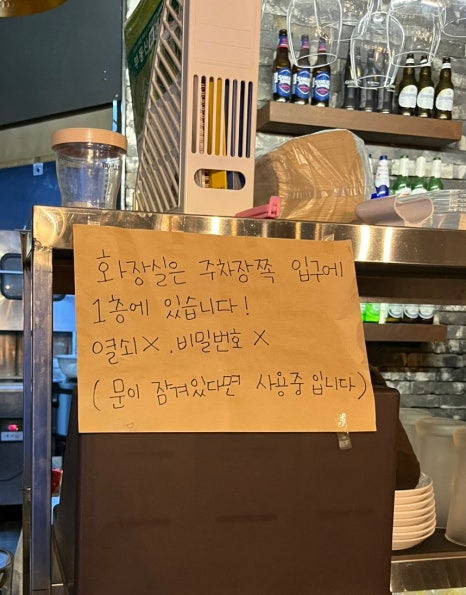 화장실은 주차장쪽 입구에
1층에 있습니다!
열쇠X. 비밀번호 X
(문이 잠겨있다면 사용중 입니다)